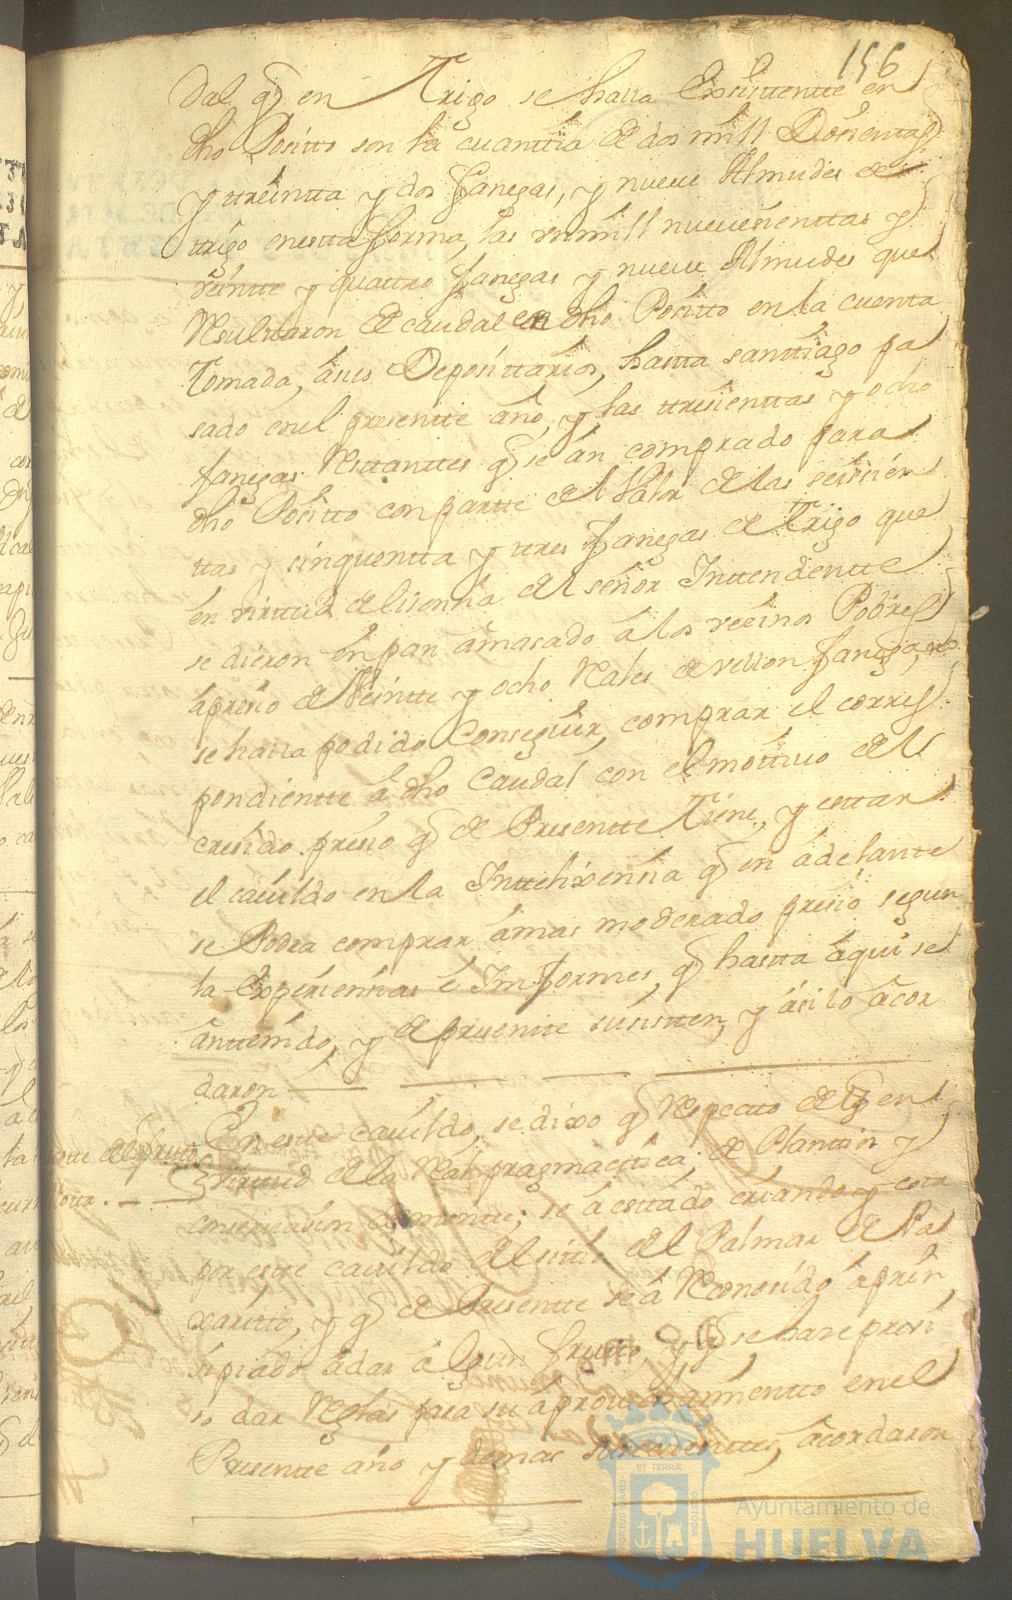 156
dal q̃ en Trigo se halla Existtentte en
dho Positto son la cuanttia de dos mill Dosientas
y treintta y dos fanegas, y nueve Almudes de
trigo en estta forma, las un mill nuevesienttas y
veintte y quattro fanegas y nueve Almudes que
Resulttaron de caudal en dho Positto en la cuenta
Tomada, â sus Deposittarios, hasta santtiago pa
sado en el presentte año, y las ttresienttas y ocho
fanegas Resttanttes q̃ se án comprado para
dho Positto con partte del Valor de las seissien
ttas y sinquentta y ttres fanegas de Trigo que
en virttud de lisensia del señor Inttendentte
se dieron en pan amasado â los vecinos Pobres
â presio de Veintte y ocho Reales de vellon fanega, no
se halla podido Conseguir, comprar el corres
pondientte â dho Caudal con el mottivo del
cresido presio q̃ de Presentte Tiene, y esttar
el cavildo en la Intteligensia q̃ en âdelante
se Podra comprar â mas moderado presio segun
la Experiensias e Informes, q̃ hasta âqui se
ân ttenido, y de presentte susisten, y âsi lo âcor
daron
En este cavildo, se dixo q̃ Respecto de q̃ en
virttud de la Real pragmactica, de Planttio y
conservasion de montte, se â esttado criando y
por este cavildo el sittio del Palmar de Pa
xaritto, y q̃ de Presentte se â Reconosido â prin
sipiado â dar âlgun frutto y q̃ se hase presi
so dar Reglas para su âprovechamientto en el
Presentte año y demas subsesivos, âcordaron
ET TERRÆ
Ayuntamiento de
HUELVA